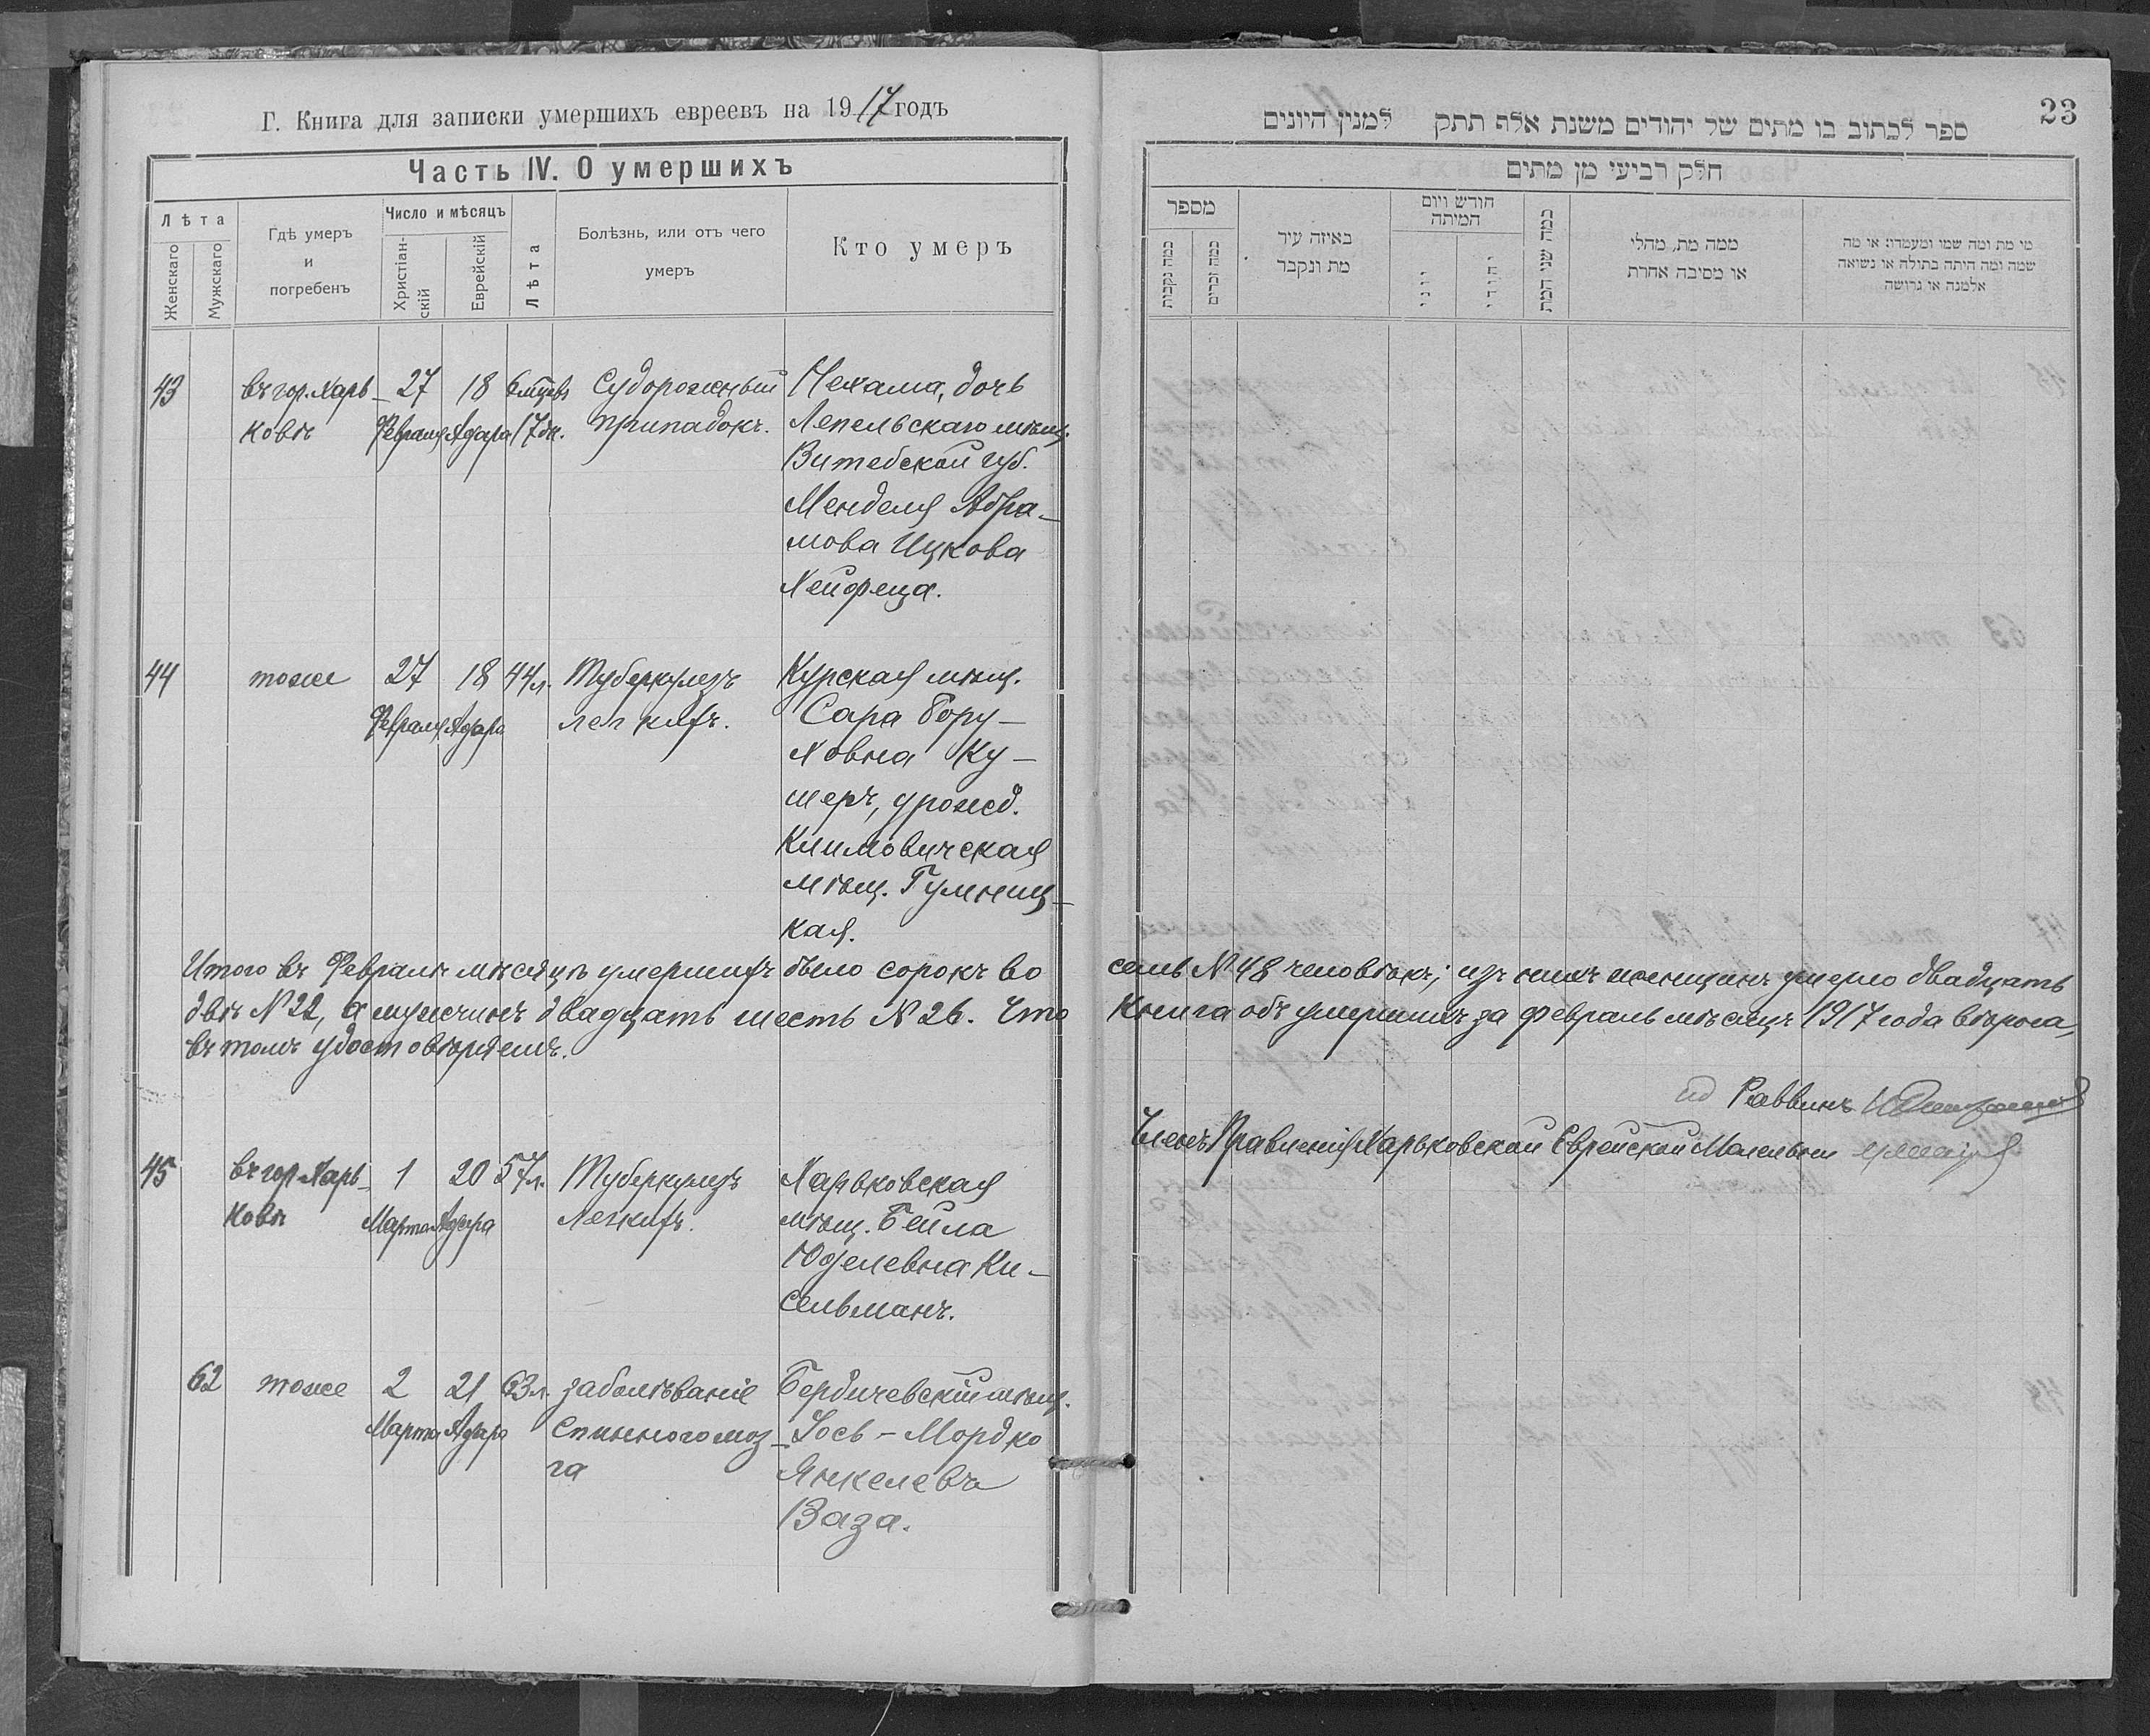 Г. Книга для записки умершихъ евреевъ на 1917 годъ
Часть IV. О умершихъ
Лѣта
Женскаго
Мужскаго
Гдѣ умеръ
и
погребенъ
Число и мѣсяцъ
Христіан-
скій
Еврейскій
Лѣта
Болѣзнь, или отъ чего
умеръ
Кто умеръ
43 въ гор. Харь- 27 18 6 мцевъ Судорожный Нехама, дочь
ковѣ Февраля Адара 17 дн. припадокъ. Лепельскаго мѣщ.
Витебской губ.
Менделя Абра-
мова Ицкова
Хейфеца.
44 тоже 27 18 44 л. Туберкулезъ Курская мѣщ.
Февраля Адара легкихъ. Сара Бору-
ховна Ку-
шеръ, урожд.
Климовичская
мѣщ. Гумниц-
кая.
Итого въ Февралѣ мѣсяцѣ умершихъ было сорокъ во
двѣ №22, а мужчинъ двадцать шесть №26. Что
въ томъ удостовѣряемъ.
45 въ гор. Харь- 1 20 57 л. Туберкулезъ Харьковская
ковѣ Марта Адара легкихъ. мѣщ. Бейла
Юделевна Ки-
сельманъ.
62 тоже 2 21 63 л. заболѣваніе Бердичевскій мѣщ.
Марта Адара спинного моз- Іось-Мордко
га Янкелевъ
Ваза.
23
ספר לכתוב בו מתים של יהודים משנת אלף תתק למנין היונים
חלק רביעי מן מתים
מספר
כמה נקבות
כמה זכרים
באיזה עיר
מת ונקבר
חודש ויום
המיתה
יוני
יהודי
כמה שני המת
ממה מת, מהלי
או מסיבה אחרת
מי מת ומה שמו ומעמדו: או מה
שמה ומה היתה בתולה או נשואה
אלמנה או גרושה
семь №48 человѣкъ; изъ нихъ женщинъ умерло двадцать
книга объ умершихъ за Февраль мѣсяцъ 1917 года вѣрна,
ид Раввинъ
Членъ Правленія Харьковской Еврейской Молельни